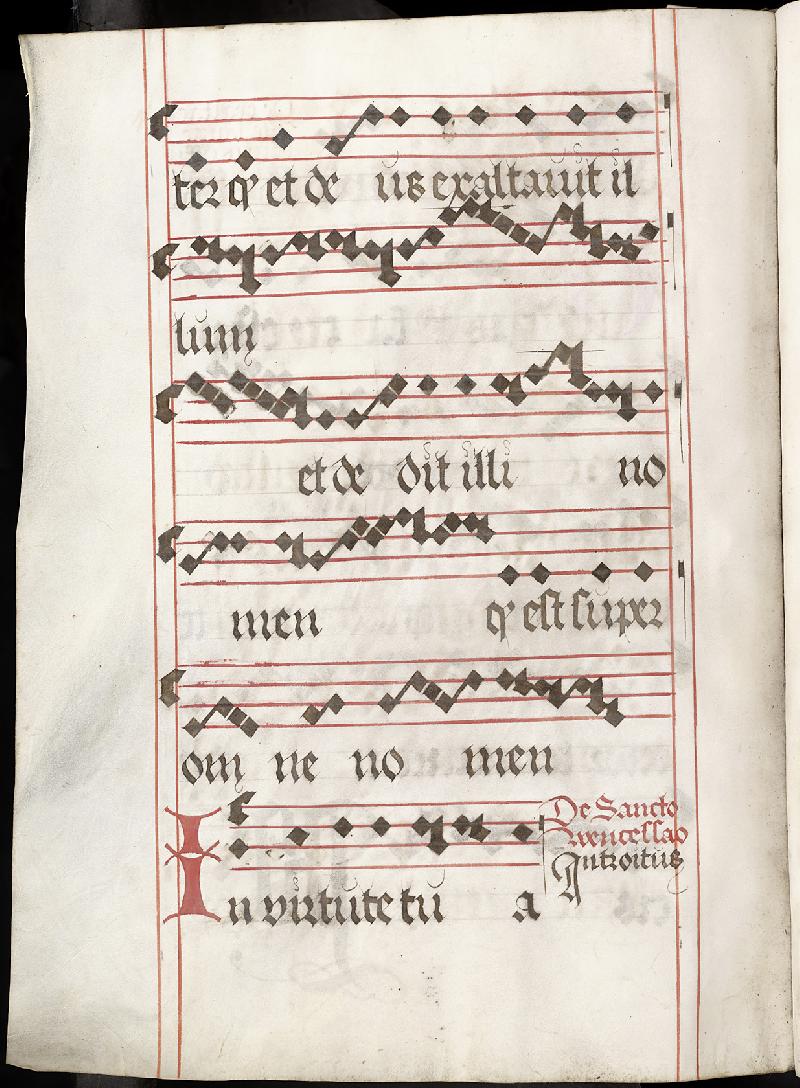 ter qͥ et de us exaltauit il
lum
et de dit illi no
men qͥ est super
om ne no men
De Sancto
wencessao
Introitus
In virtute tu a